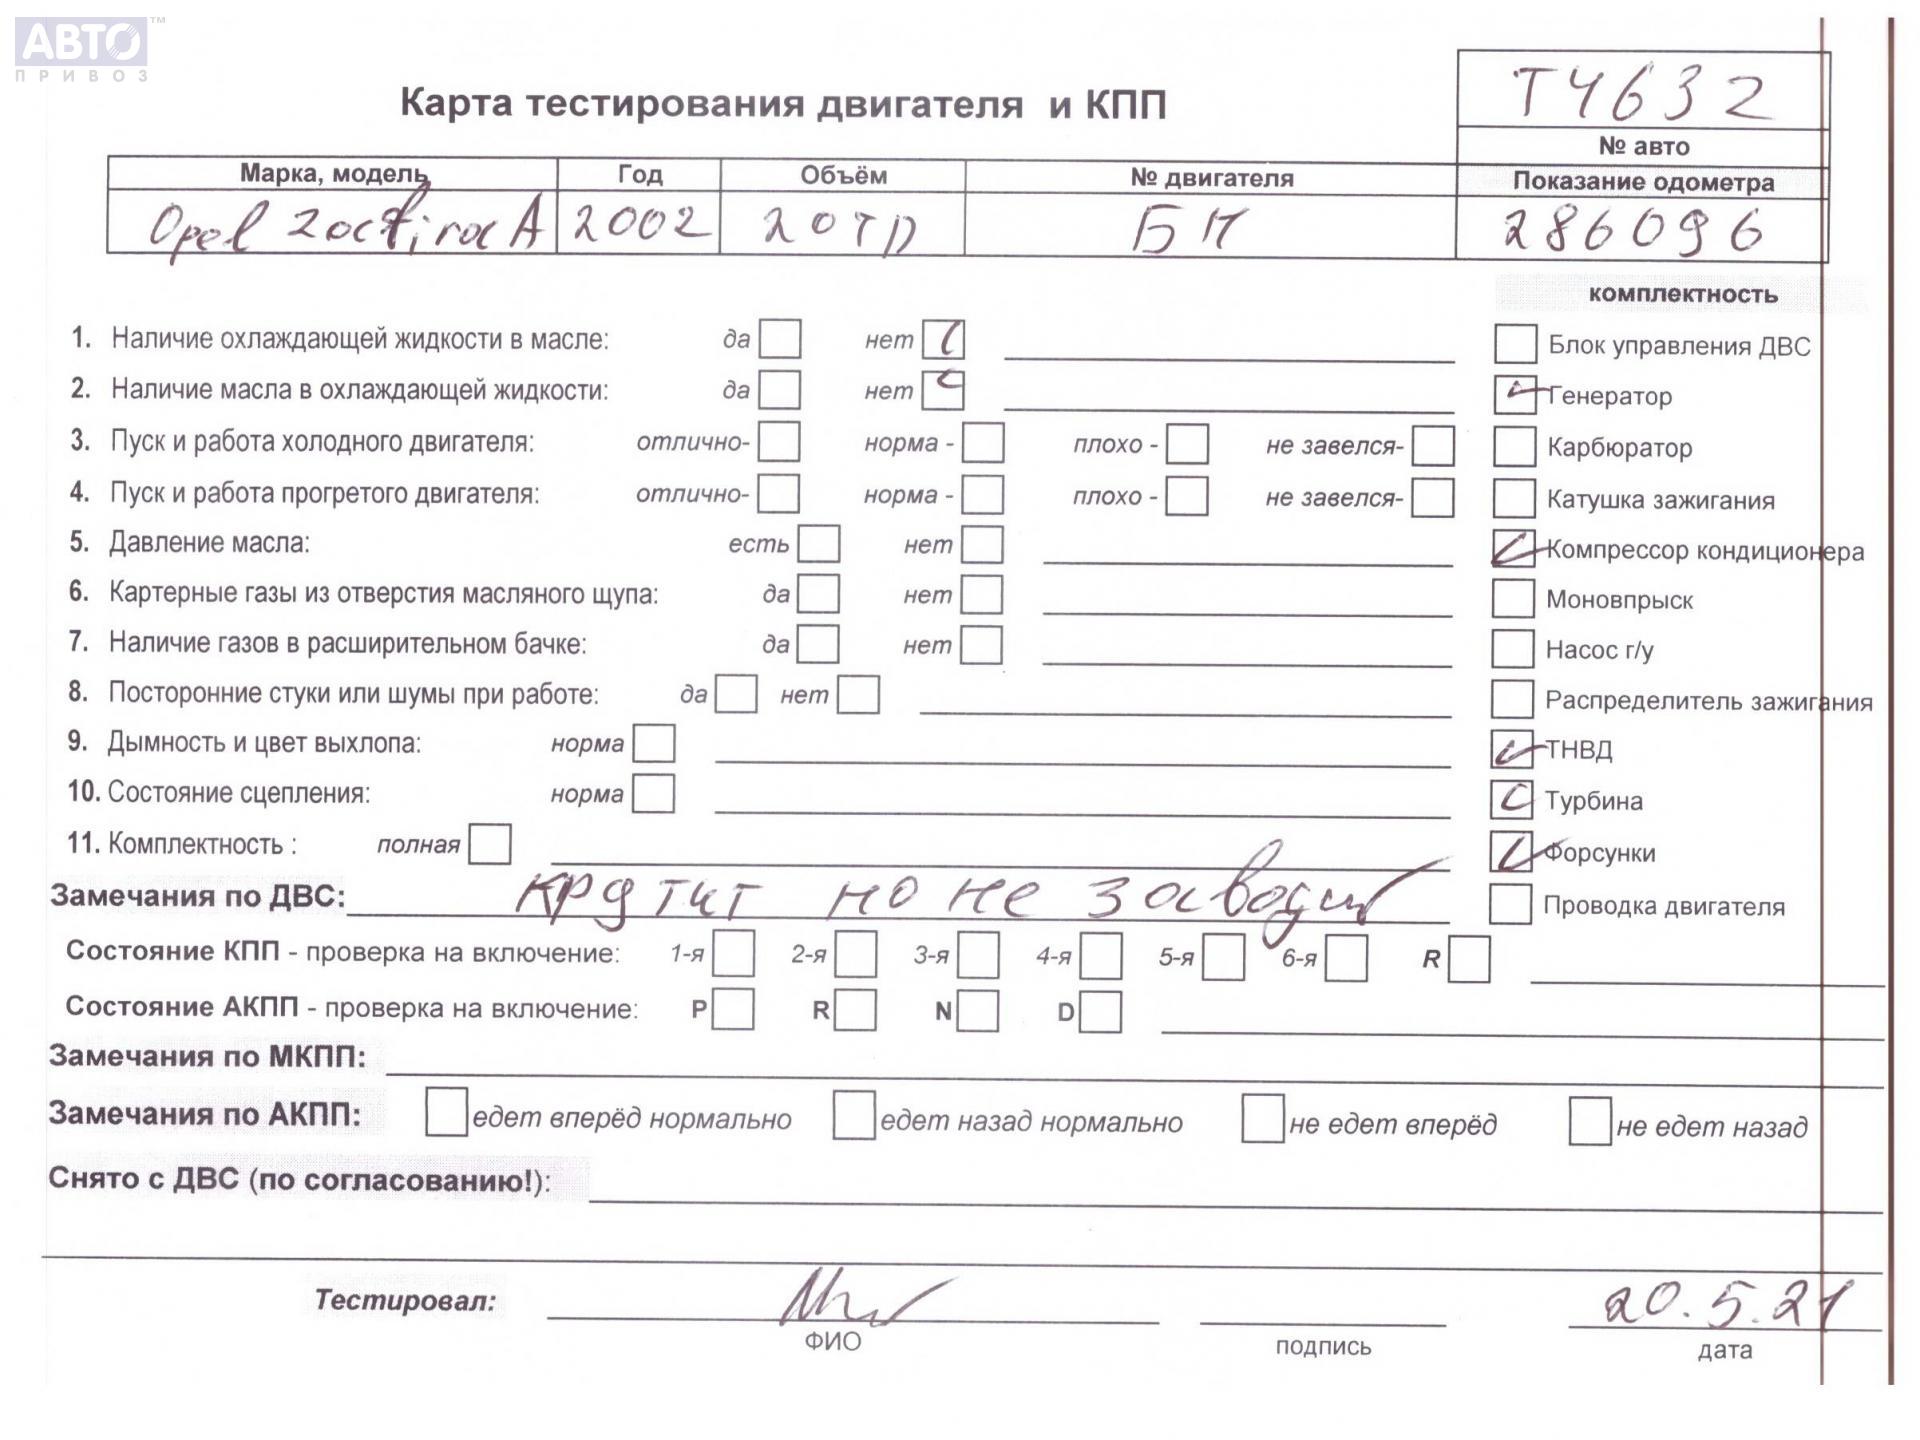 АВТО™
ПРИВОЗ
Карта тестирования двигателя и КПП
Т4632
№ авто
Марка, модель Год Объём № двигателя Показание одометра
Opel Zafira A 2002 20TD БН 286096
комплектность
1. Наличие охлаждающей жидкости в масле: да нет Блок управления ДВС
2. Наличие масла в охлаждающей жидкости: да нет Генератор
3. Пуск и работа холодного двигателя: отлично- норма - плохо - не завелся- Карбюратор
4. Пуск и работа прогретого двигателя: отлично- норма - плохо - не завелся- Катушка зажигания
5. Давление масла: есть нет Компрессор кондиционера
6. Картерные газы из отверстия масляного щупа: да нет Моновпрыск
7. Наличие газов в расширительном бачке: да нет Насос г/у
8. Посторонние стуки или шумы при работе: да нет Распределитель зажигания
9. Дымность и цвет выхлопа: норма ТНВД
10. Состояние сцепления: норма Турбина
11. Комплектность : полная Форсунки
Замечания по ДВС: крутит но не заводит Проводка двигателя
Состояние КПП - проверка на включение: 1-я 2-я 3-я 4-я 5-я 6-я R
Состояние АКПП - проверка на включение: P R N D
Замечания по МКПП:
Замечания по АКПП: едет вперёд нормально едет назад нормально не едет вперёд не едет назад
Снято с ДВС (по согласованию!):
Тестировал: 20.5.21
ФИО подпись дата